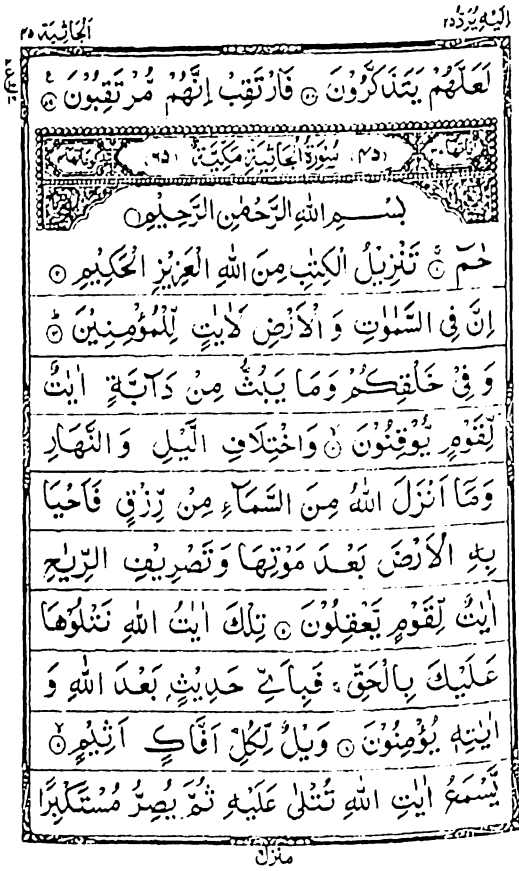 اِلَيْهِ يُرَدُّ ٢٥
اَلْجَاثِيَة ٤٥
لَعَلَّهُمْ يَتَذَكَّرُوْنَ ۝٥٨ فَارْتَقِبْ اِنَّهُمْ مُّرْتَقِبُوْنَ ۝٥٩
(٤٥) سُوْرَةُ الْجَاثِيَةِ مَكِّيَّةٌ (٦٥)
بِسْمِ اللّٰهِ الرَّحْمٰنِ الرَّحِيْمِ
حٰمٓ ۝١ تَنْزِيْلُ الْكِتٰبِ مِنَ اللّٰهِ الْعَزِيْزِ الْحَكِيْمِ ۝٢
اِنَّ فِي السَّمٰوٰتِ وَ الْاَرْضِ لَاٰيٰتٍ لِّلْمُؤْمِنِيْنَ ۝٣
وَ فِيْ خَلْقِكُمْ وَمَا يَبُثُّ مِنْ دَآبَّةٍ اٰيٰتٌ
لِّقَوْمٍ يُّوْقِنُوْنَ ۝٤ وَاخْتِلَافِ الَّيْلِ وَ النَّهَارِ
وَمَا اَنْزَلَ اللّٰهُ مِنَ السَّمَآءِ مِنْ رِّزْقٍ فَاَحْيَا
بِهِ الْاَرْضَ بَعْدَ مَوْتِهَا وَ تَصْرِيْفِ الرِّيٰحِ
اٰيٰتٌ لِّقَوْمٍ يَّعْقِلُوْنَ ۝٥ تِلْكَ اٰيٰتُ اللّٰهِ نَتْلُوْهَا
عَلَيْكَ بِالْحَقِّ ۚ فَبِاَيِّ حَدِيْثٍۭ بَعْدَ اللّٰهِ وَ
اٰيٰتِهٖ يُؤْمِنُوْنَ ۝٦ وَيْلٌ لِّكُلِّ اَفَّاكٍ اَثِيْمٍ ۝٧
يَّسْمَعُ اٰيٰتِ اللّٰهِ تُتْلٰى عَلَيْهِ ثُمَّ يُصِرُّ مُسْتَكْبِرًا
منزل ٦